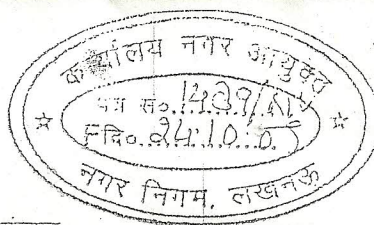 कार्यालय नगर आयुक्त
पत्र सं०
दि० 24.10.05
नगर निगम, लखनऊ